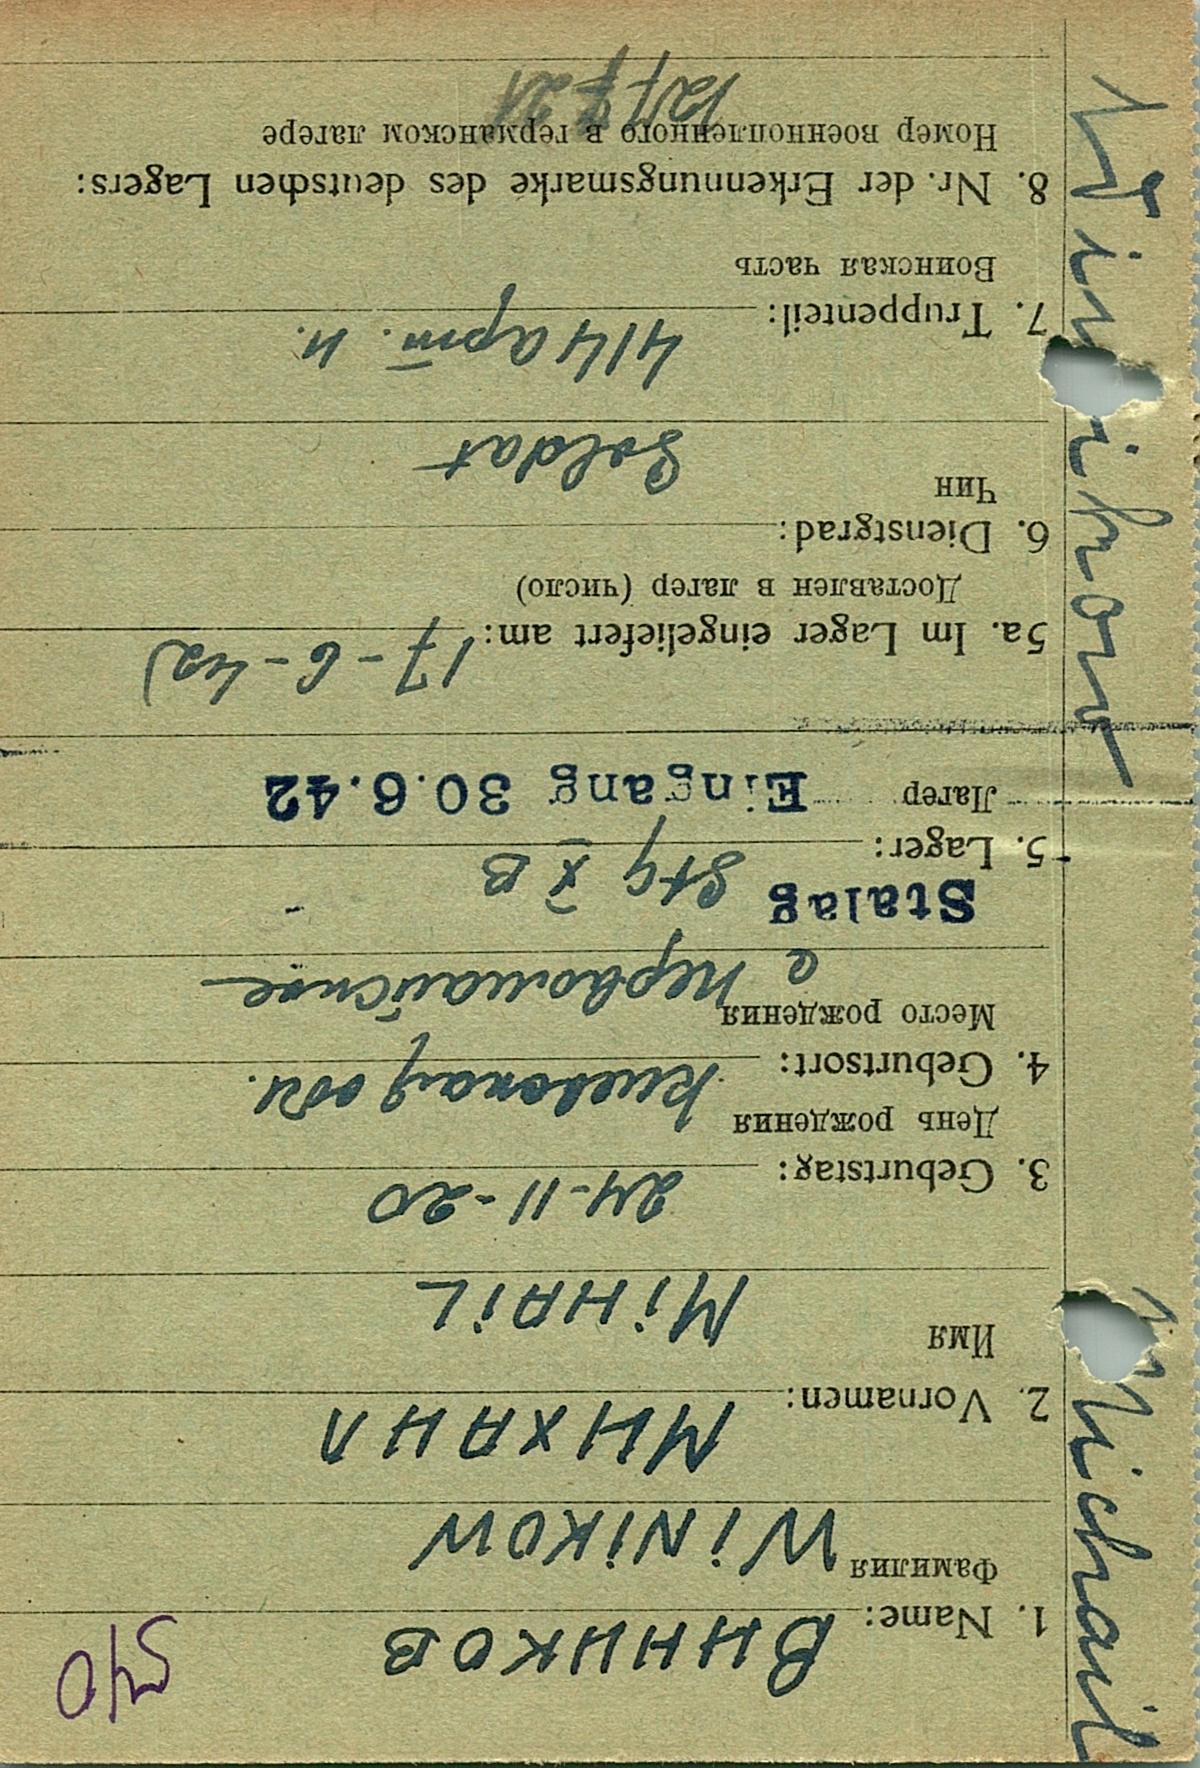 540
Winikow Michail
ВИНИКОВ
1. Name:
Фамилия
WiNiKOW
МИХАИЛ
2. Vornamen:
Имя
MiHAiL
24-11-20
3. Geburtstag:
День рождения
Киевская обл.
4. Geburtsort:
Место рождения
с Первомайское
Stalag Stg X B
5. Lager:
Лагер
Eingang 30.6.42
17-6-42
5a. Im Lager eingeliefert am:
Доставлен в лагер (число)
6. Dienstgrad:
Чин
Soldat
414 арт. п.
7. Truppenteil:
Воинская часть
8. Nr. der Erkennungsmarke des deutschen Lagers:
Номер военнопленного в германском лагере